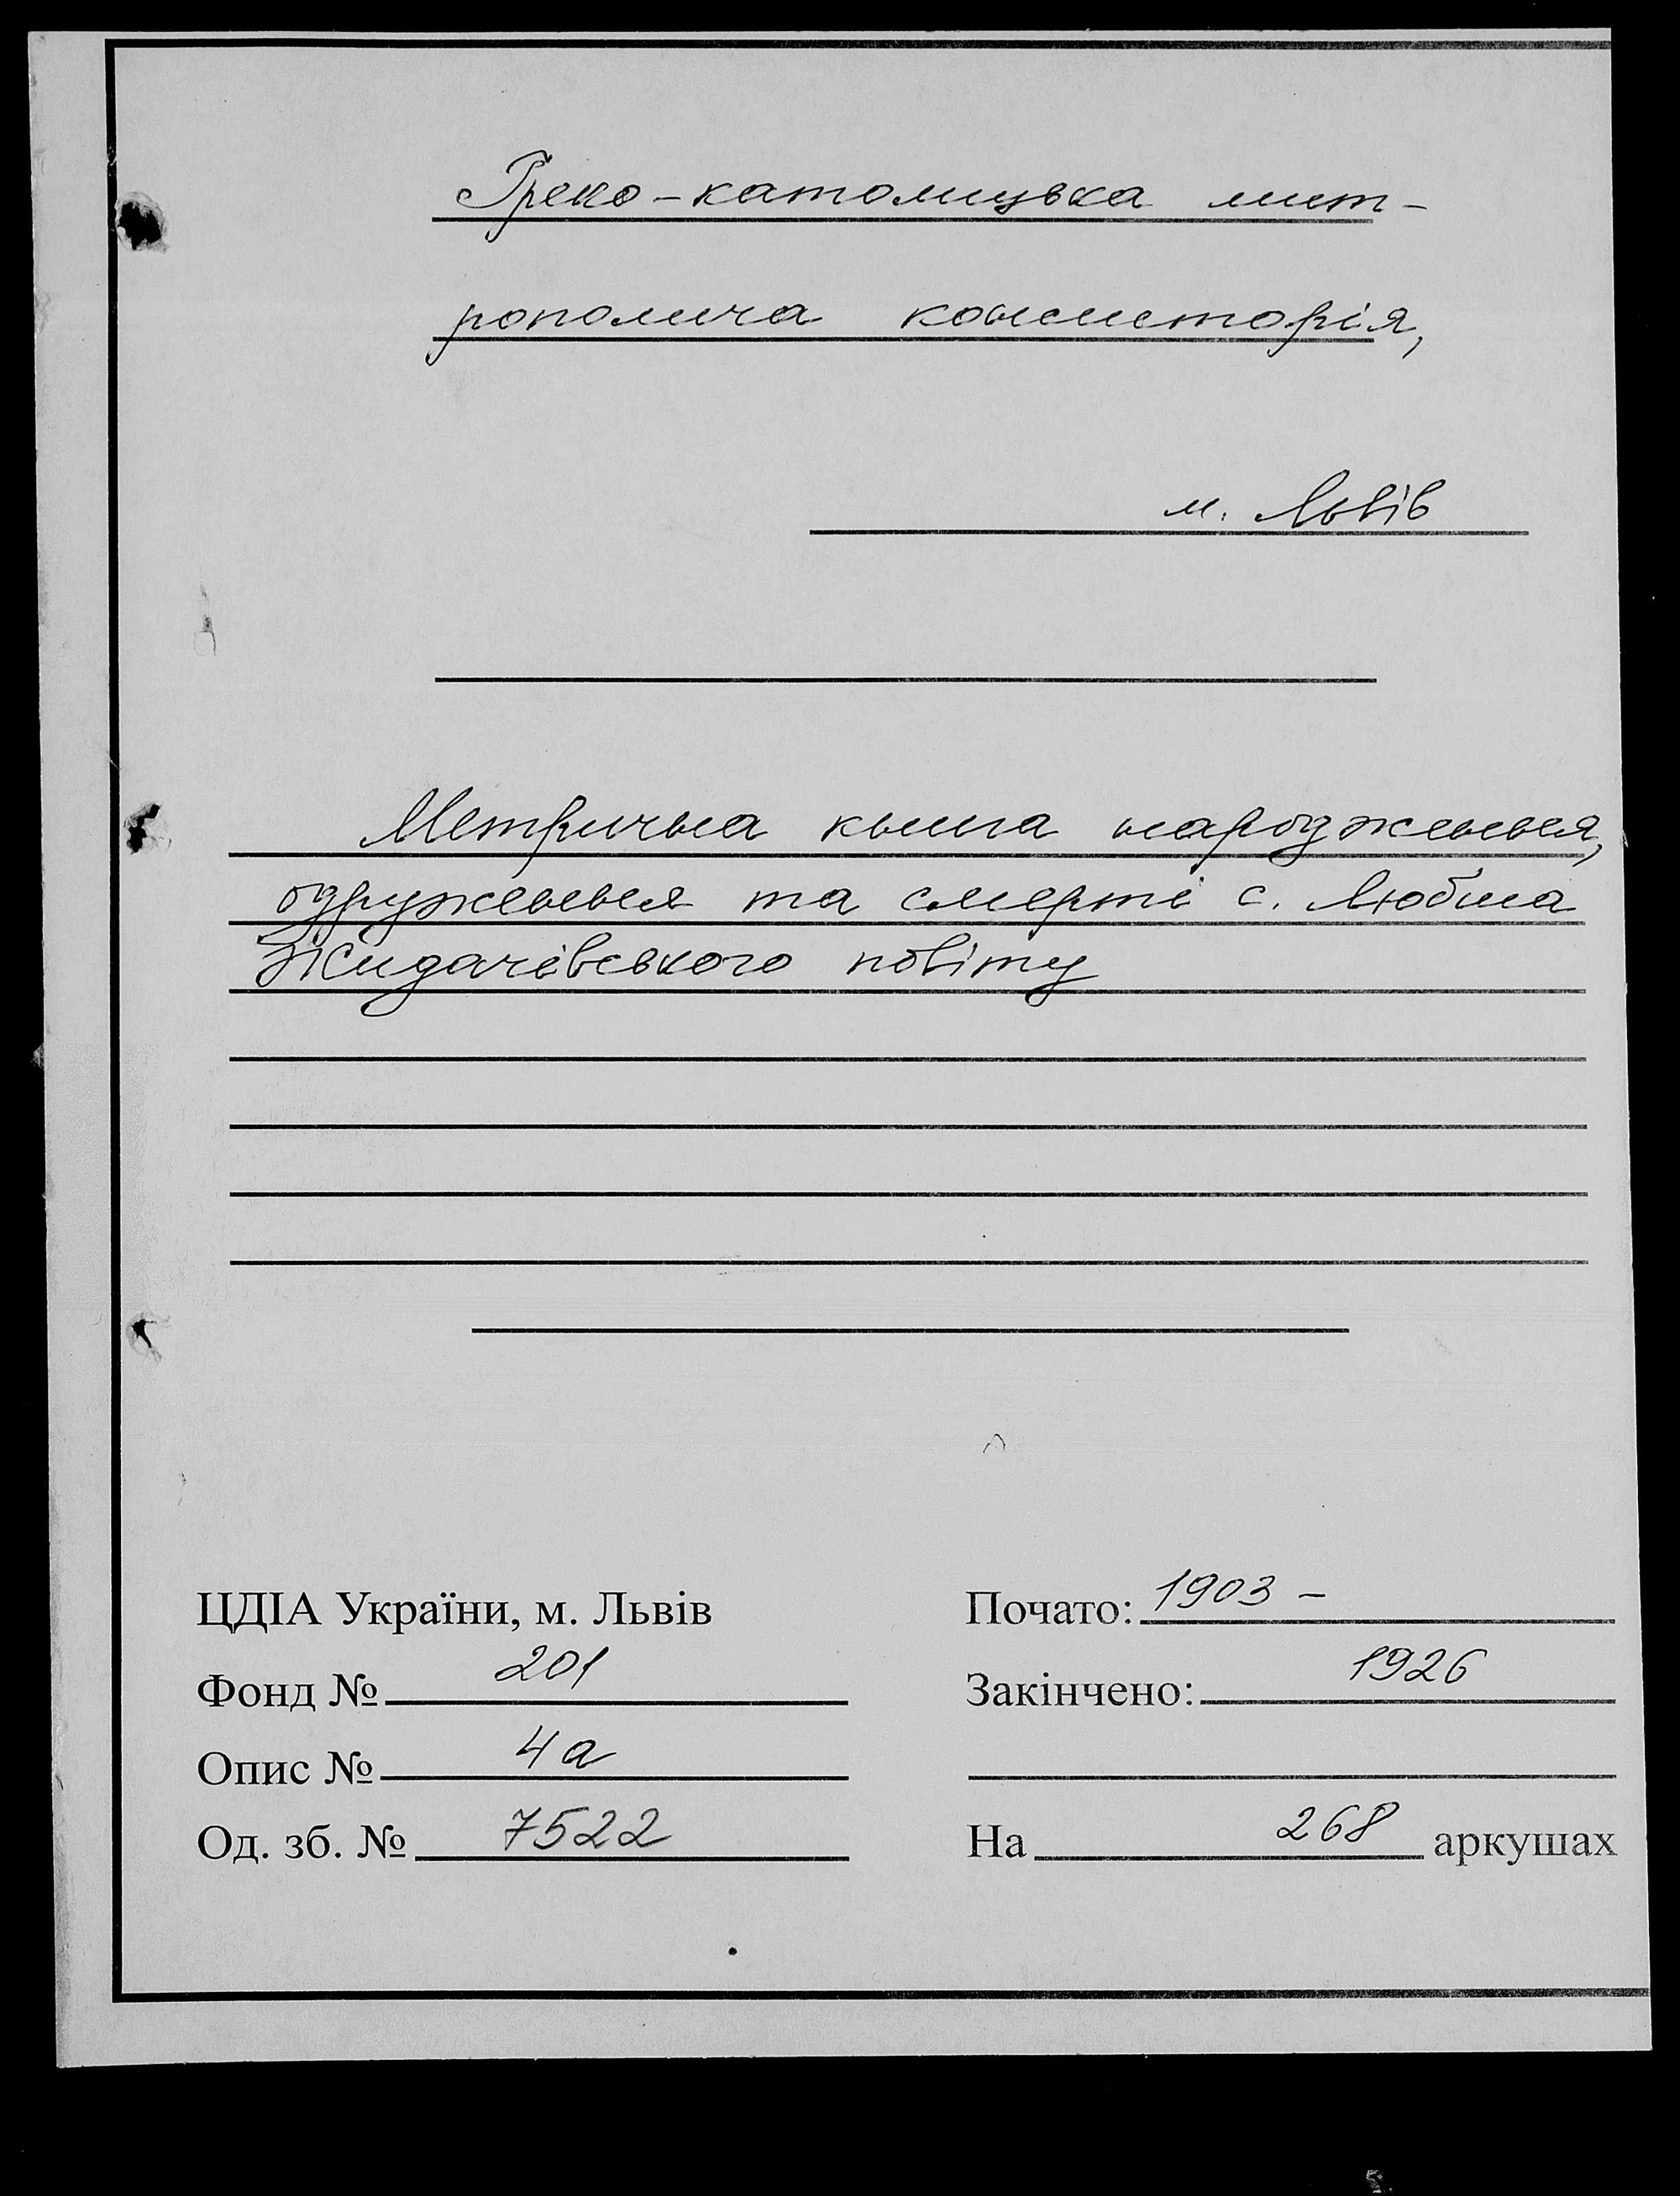 Греко-католицька мит-
рополича консисторія,
м. Львів
Метрична книга народження,
одруження та смерті с. Любша
Жидачівського повіту
ЦДІА України, м. Львів
Фонд № 201
Опис № 4а
Од. зб. № 7522
Почато: 1903 –
Закінчено: 1926
На 268 аркушах